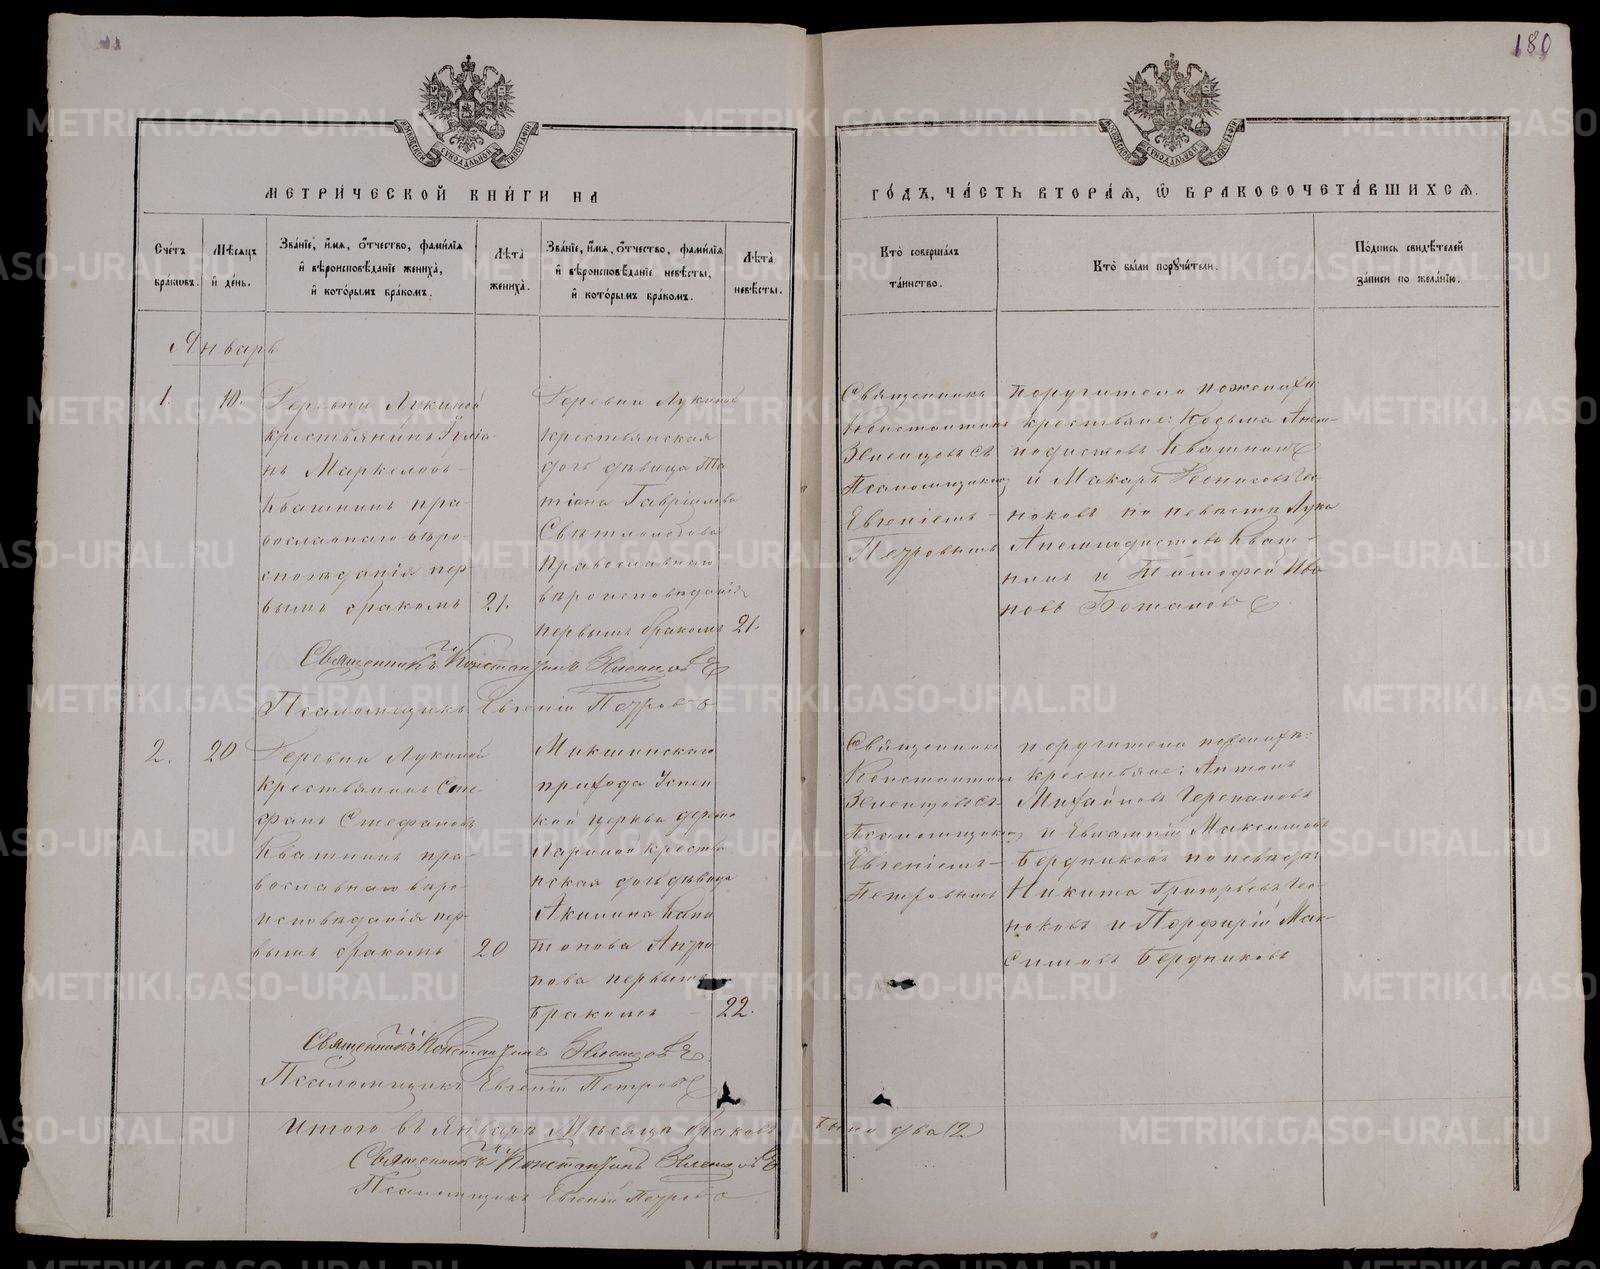 180
МЕТРИ́ЧЕСКОЙ КНИ́ГИ НА
ГО́ДЪ, ЧА́СТЬ ВТОРА́Я, Ѿ БРАКОСОЧЕТА́ВШИХСЯ.
Сче́тъ бра́кѡвъ.
Мѣ́сяцъ и҆ де́нь.
Зва́нїе, и҆́мя, ѻ҆́тчество, фами́лїя
и҆ вѣроисповѣ́данїе жениха̀,
и҆ кото́рымъ бра́комъ.
Лѣ́та̀ жениха̀.
Зва́нїе, и҆́мя, ѻ҆́тчество, фами́лїя
и҆ вѣроисповѣ́данїе невѣ́сты,
и҆ кото́рымъ бра́комъ.
Лѣ́та̀ невѣ́сты.
Кто̀ соверша́лъ
та́инство.
Кто̀ бы́ли порꙋчи́тели.
По́дпись свидѣ́телей
за́писи по жела́нїю.
Январь
1.
10.
Деревни Лукиной
крестьянинъ Іуліа
нъ Маркеловъ
Квашнинъ пра-
вославнаго вѣро-
исповѣданія пер-
вымъ бракомъ
21.
Деревни Лукиной
крестьянская
дочь дѣвица Та
тіана Гавріилова
Православнаго
вѣроисповѣданія
первымъ бракомъ
21.
Священникъ
Константинъ
съ
Псаломщикомъ
Евгеніемъ
Петровымъ
Поручители по женихѣ
крестьяне: Козьма
Квашнинъ
и Макаръ
по невѣстѣ Лука
Кваш-
нинъ и Тимофей Ива
новъ
Священникъ Константинъ
Псаломщикъ Евгеній Петровъ
2.
20
Деревни Лукиной
крестьянинъ Сте-
фанъ Стефановъ
Квашнинъ пра-
вославнаго вѣро-
исповѣданія пер-
вымъ бракомъ
20
Микшинскаго
прихода Успен
кой церкви дерев
Лариной крестья
нская дочь дѣвица
Акилина Капи
тонова Антро
пова первымъ
бракомъ
22.
Священникъ
Константинъ
съ
Псаломщикомъ
Евгеніемъ
Петровымъ
поручители по женихѣ:
крестьяне: Антонъ
Михайловъ Черепановъ
и Евлампій Максимовъ
Бердниковъ по невѣстѣ
Никита Григорьевъ
и Порфирій Мак-
симовъ Бердниковъ
Священникъ Константинъ
Псаломщикъ Евгеній Петровъ
Итого въ Январѣ Мѣсяцѣ браковъ было два (2)
Священникъ Константинъ
Псаломщикъ Евгеній Петровъ
METRIKI.GASO-URAL.RU